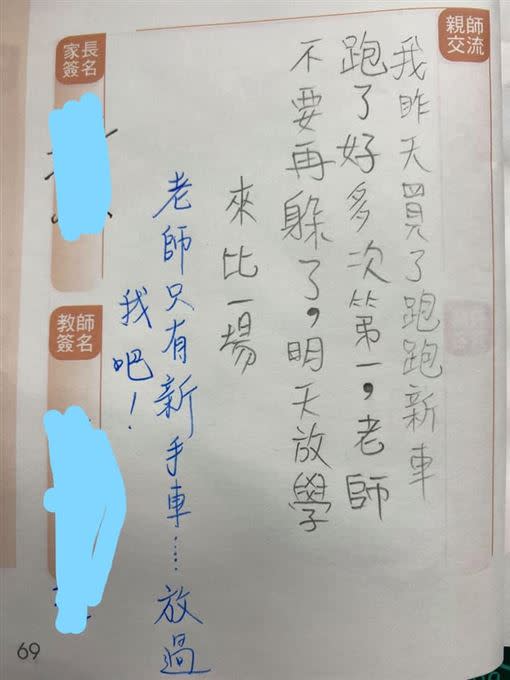 親師
交流
我昨天買了跑跑新車
跑了好多次第一，老師
不要再躲了，明天放學
來比一場
老師只有新手車……放過
我吧！
家長
簽名
教師
簽名
69